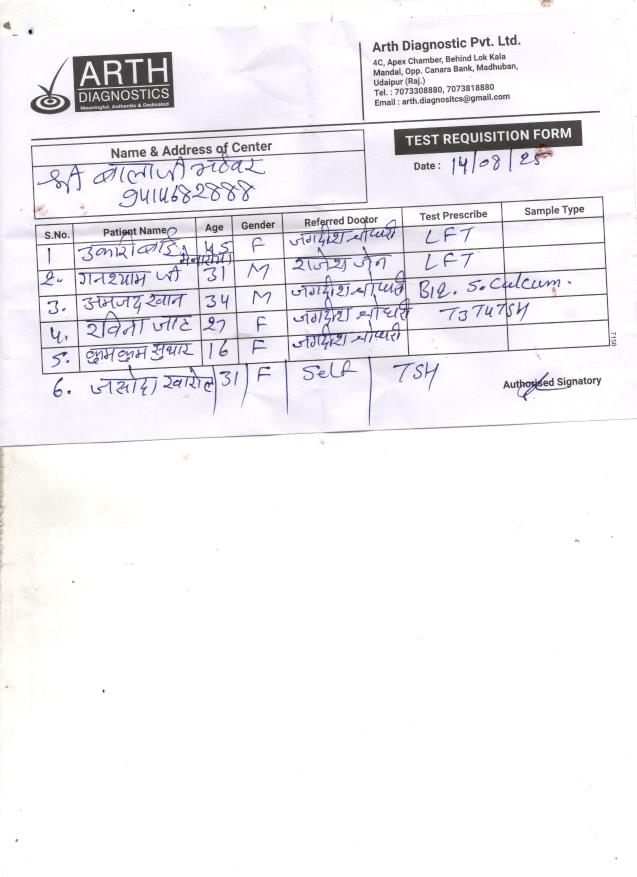 ARTH
DIAGNOSTICS
Meaningful, Authentic & Dedicated
Arth Diagnostic Pvt. Ltd.
4C, Apex Chamber, Behind Lok Kala
Mandal, Opp. Canara Bank, Madhuban,
Udaipur (Raj.)
Tel. : 7073308880, 7073818880
Email : arth.diagnositcs@gmail.com
Name & Address of Center
श्री बालाजी
9414682888
TEST REQUISITION FORM
Date : 14/08/25
S.No. Patient Name Age Gender Referred Doctor Test Prescribe Sample Type
1 45 F जगदीश चौधरी LFT
2. गनश्याम जी 31 M राजेश जैन LFT
3. अमजद खान 34 M जगदीश चौधरी B12. S. Calcum.
4. रविना जाट 27 F जगदीश चौधरी T3T4TSH
5. कुमकुम सुथार 16 F जगदीश चौधरी
6. जसोदा खारोल 31 F Self TSH
Authorised Signatory
7158